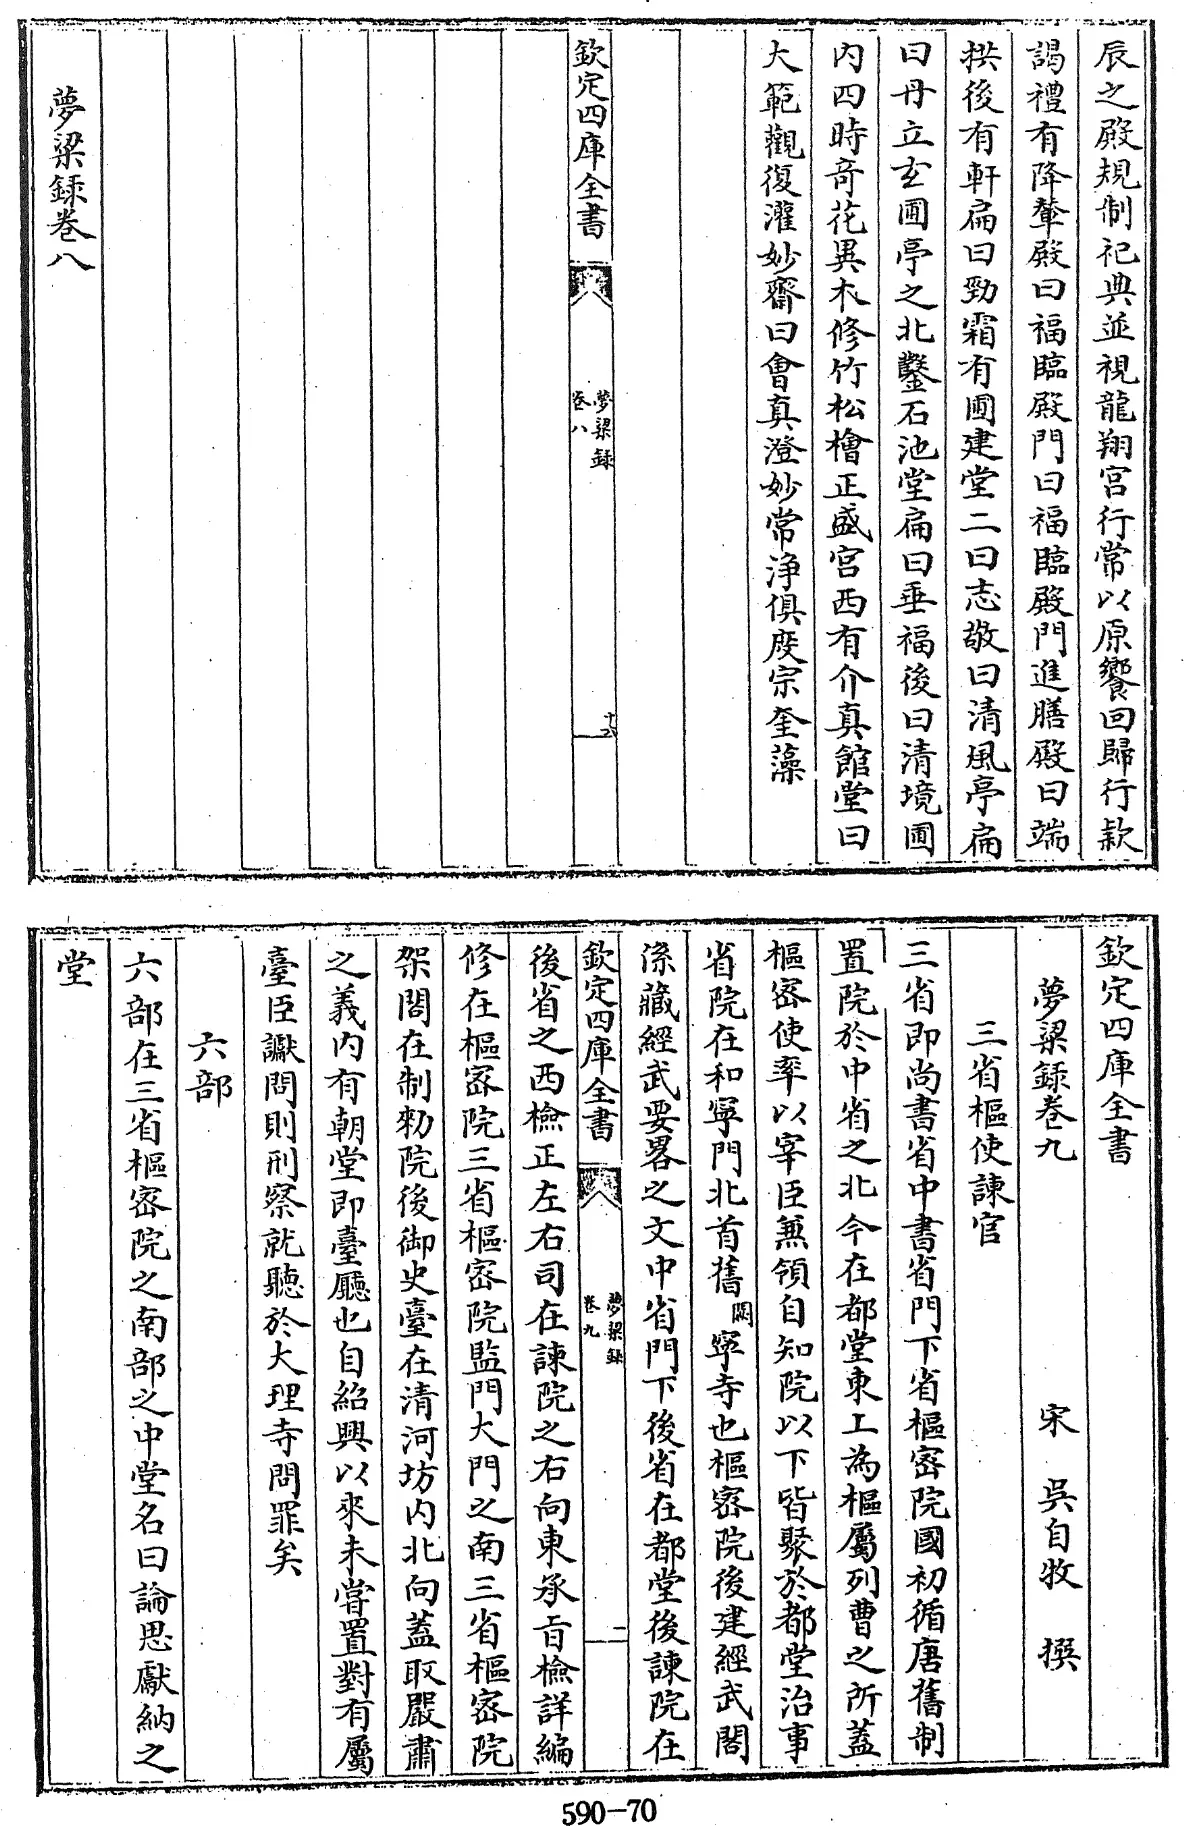 辰之殿規制祀典並視龍翔宮行常以原饗回歸行款
謁禮有降輦殿曰福臨殿門曰福臨殿門進膳殿曰端
拱後有軒扁曰勁霜有圃建堂二曰志敬曰清風亭扁
曰丹立玄圃亭之北鑿石池堂扁曰垂福後曰清境圃
内四時奇花異木修竹松檜正盛宫西有介真館堂曰
大範觀復灌妙齋曰會真澄妙常淨俱度宗奎藻
欽定四庫全書
夢粱録
卷八
十六
夢粱録卷八
欽定四庫全書
夢粱録卷九
宋 吳自牧 撰
三省樞使諫官
三省即尚書省中書省門下省樞密院國初循唐舊制
置院於中省之北今在都堂東上為樞屬列曹之所蓋
樞密使率以宰臣兼領自知院以下皆聚於都堂治事
省院在和寧門北首舊闕寧寺也樞密院後建經武閣
係藏經武要畧之文中省門下後省在都堂後諫院在
欽定四庫全書
夢粱録
卷九
二
後省之西檢正左右司在諫院之右向東承㫖檢詳編
修在樞密院三省樞密院監門大門之南三省樞密院
架閣在制勅院後御史臺在清河坊内北向蓋取嚴肅
之義内有朝堂即臺廳也自紹興以來未嘗置對有屬
臺臣讞問則刑察就聽於大理寺問罪矣
六部
六部在三省樞密院之南部之中堂名曰論思獻納之
堂
590-70